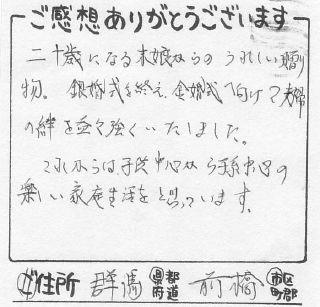 ご感想ありがとうございます
二十歳になる末娘からの うれしい贈り
物。 銀婚式を終え、金婚式へ向けて夫婦
の絆を益々強くいたしました。
これからは子供中心から孫中心の
楽しい家庭生活をと思っています。
ご住所 群馬 都道府県 前橋 市区町郡